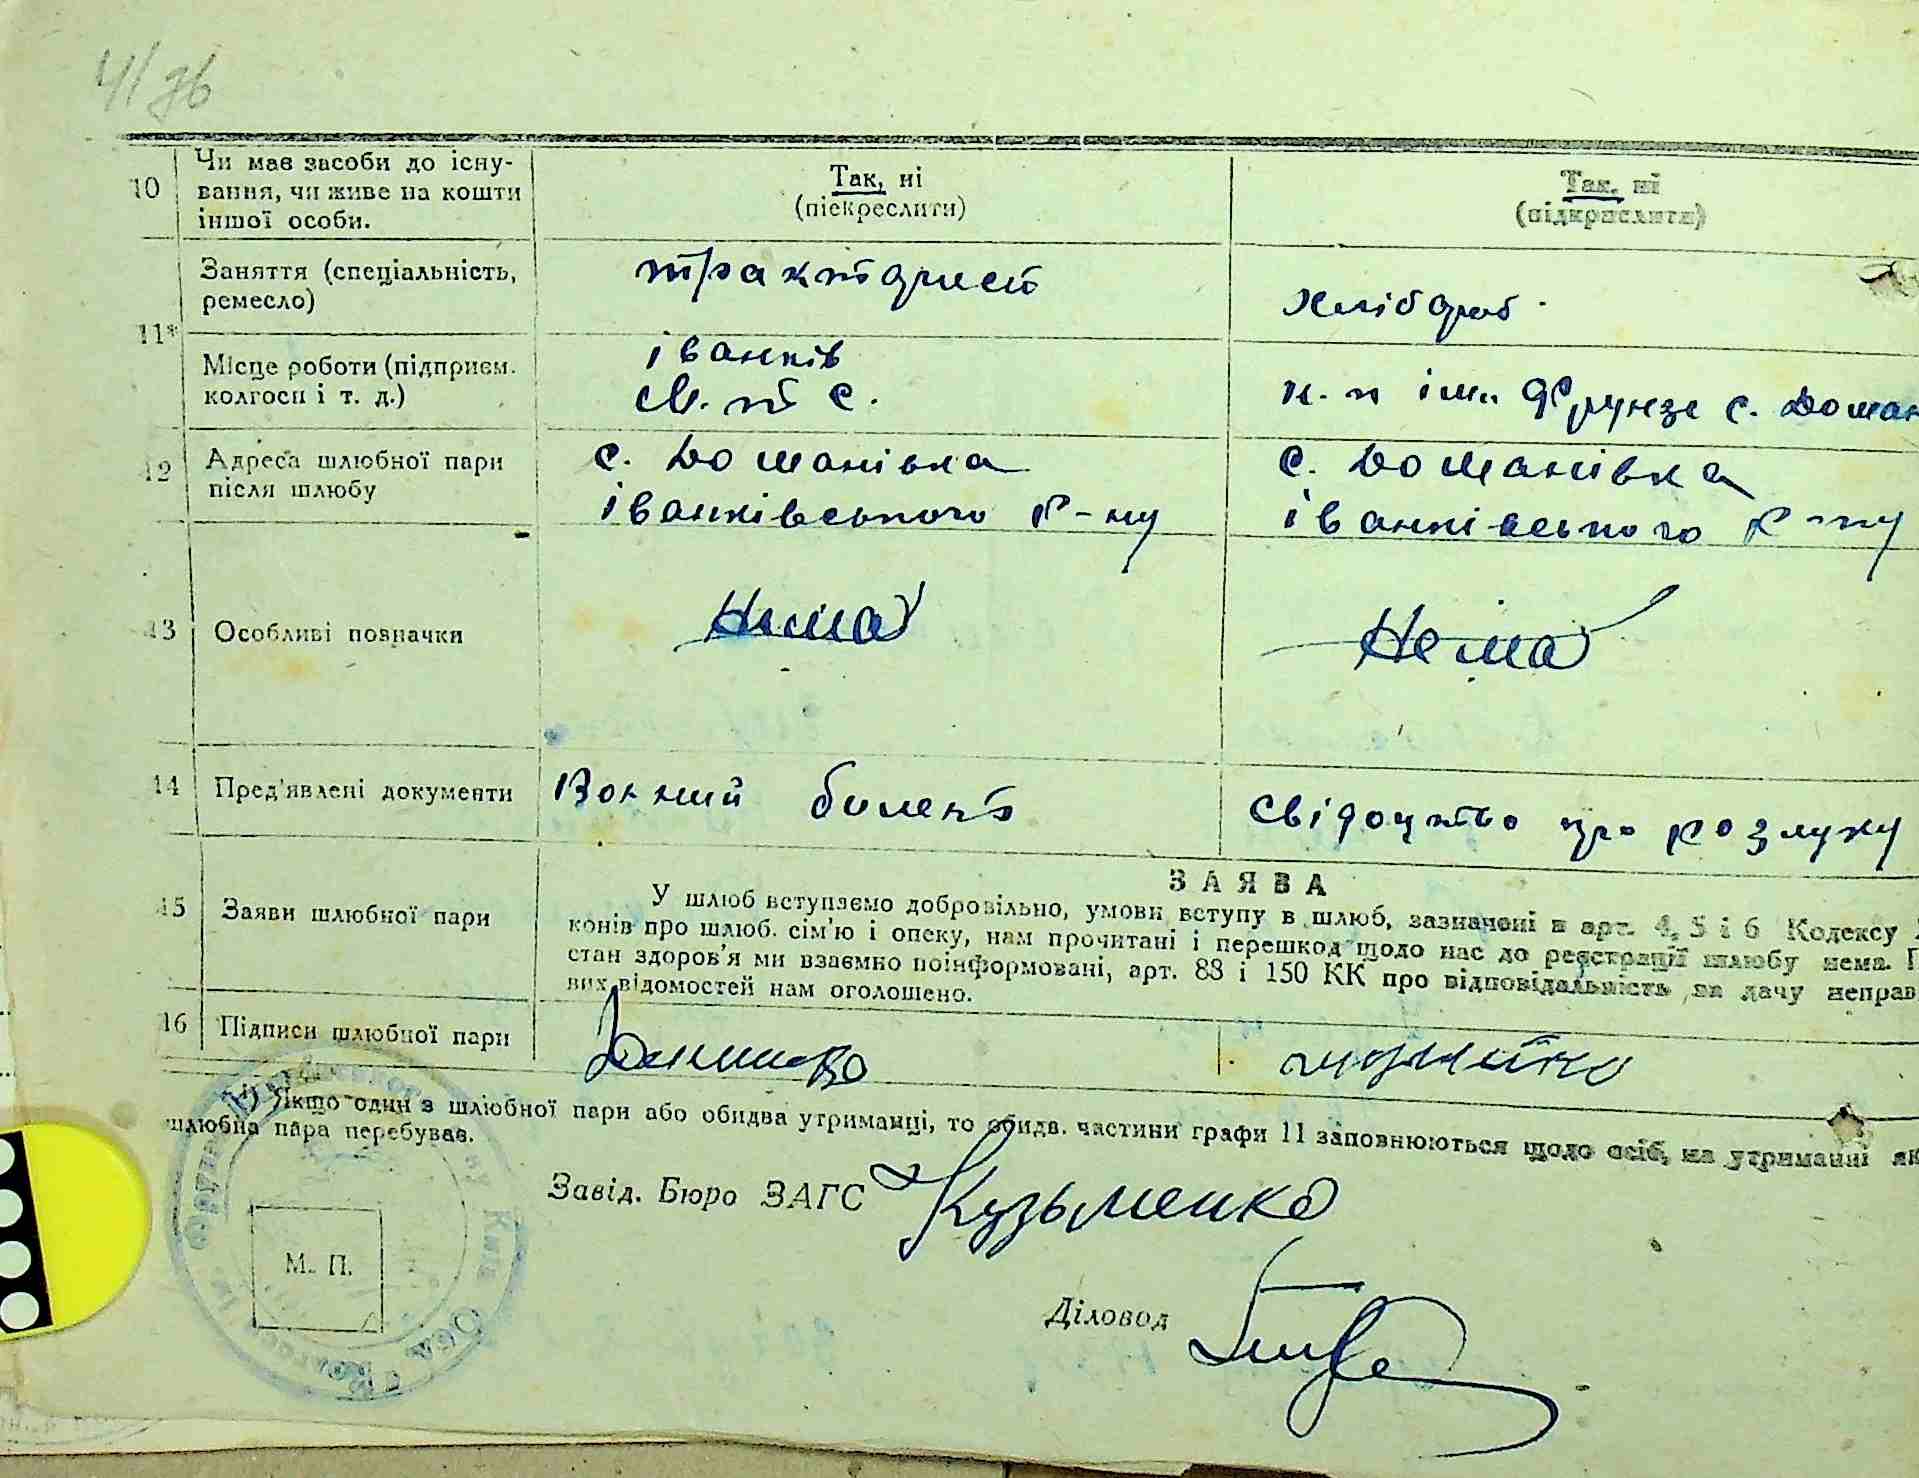 10
Чи має засоби до існу-
вання, чи живе на кошти
іншої особи.
Так, ні
(піекреслити)
Так, ні
(підкреслити)
11*
Заняття (спеціальність,
ремесло)
тракторист
хлібороб
Місце роботи (підприєм.
колгосп і т. д.)
іванків
М.т С.
к. п ім. Фрунзе с. Доман
12
Адреса шлюбної пари
після шлюбу
с. Доманівка
іванківського р-ну
с. Доманівка
іванківського р-ну
13
Особливі позначки
Нима
Нема
14
Пред'явлені документи
Воєнний билет
Свідоцтво про розлуку
15
Заяви шлюбної пари
ЗАЯВА
У шлюб вступаємо добровільно, умови вступу в шлюб, зазначені в арт. 4, 5 і 6 Кодексу
конів про шлюб. сім'ю і опеку, нам прочитані і перешкод щодо нас до реєстрації шлюбу нема. П
стан здоров'я ми взаємно поінформовані, арт. 88 і 150 КК про відповідальність за дачу неправ
вих відомостей нам оголошено.
16
Підписи шлюбної пари
¹) Якщо один з шлюбної пари або обидва утриманці, то обидв. частини графи 11 заповнюються щодо осіб, на утриманні як
шлюбна пара перебуває.
Завід. Бюро ЗАГС
Кузьменко
М. П.
Діловод